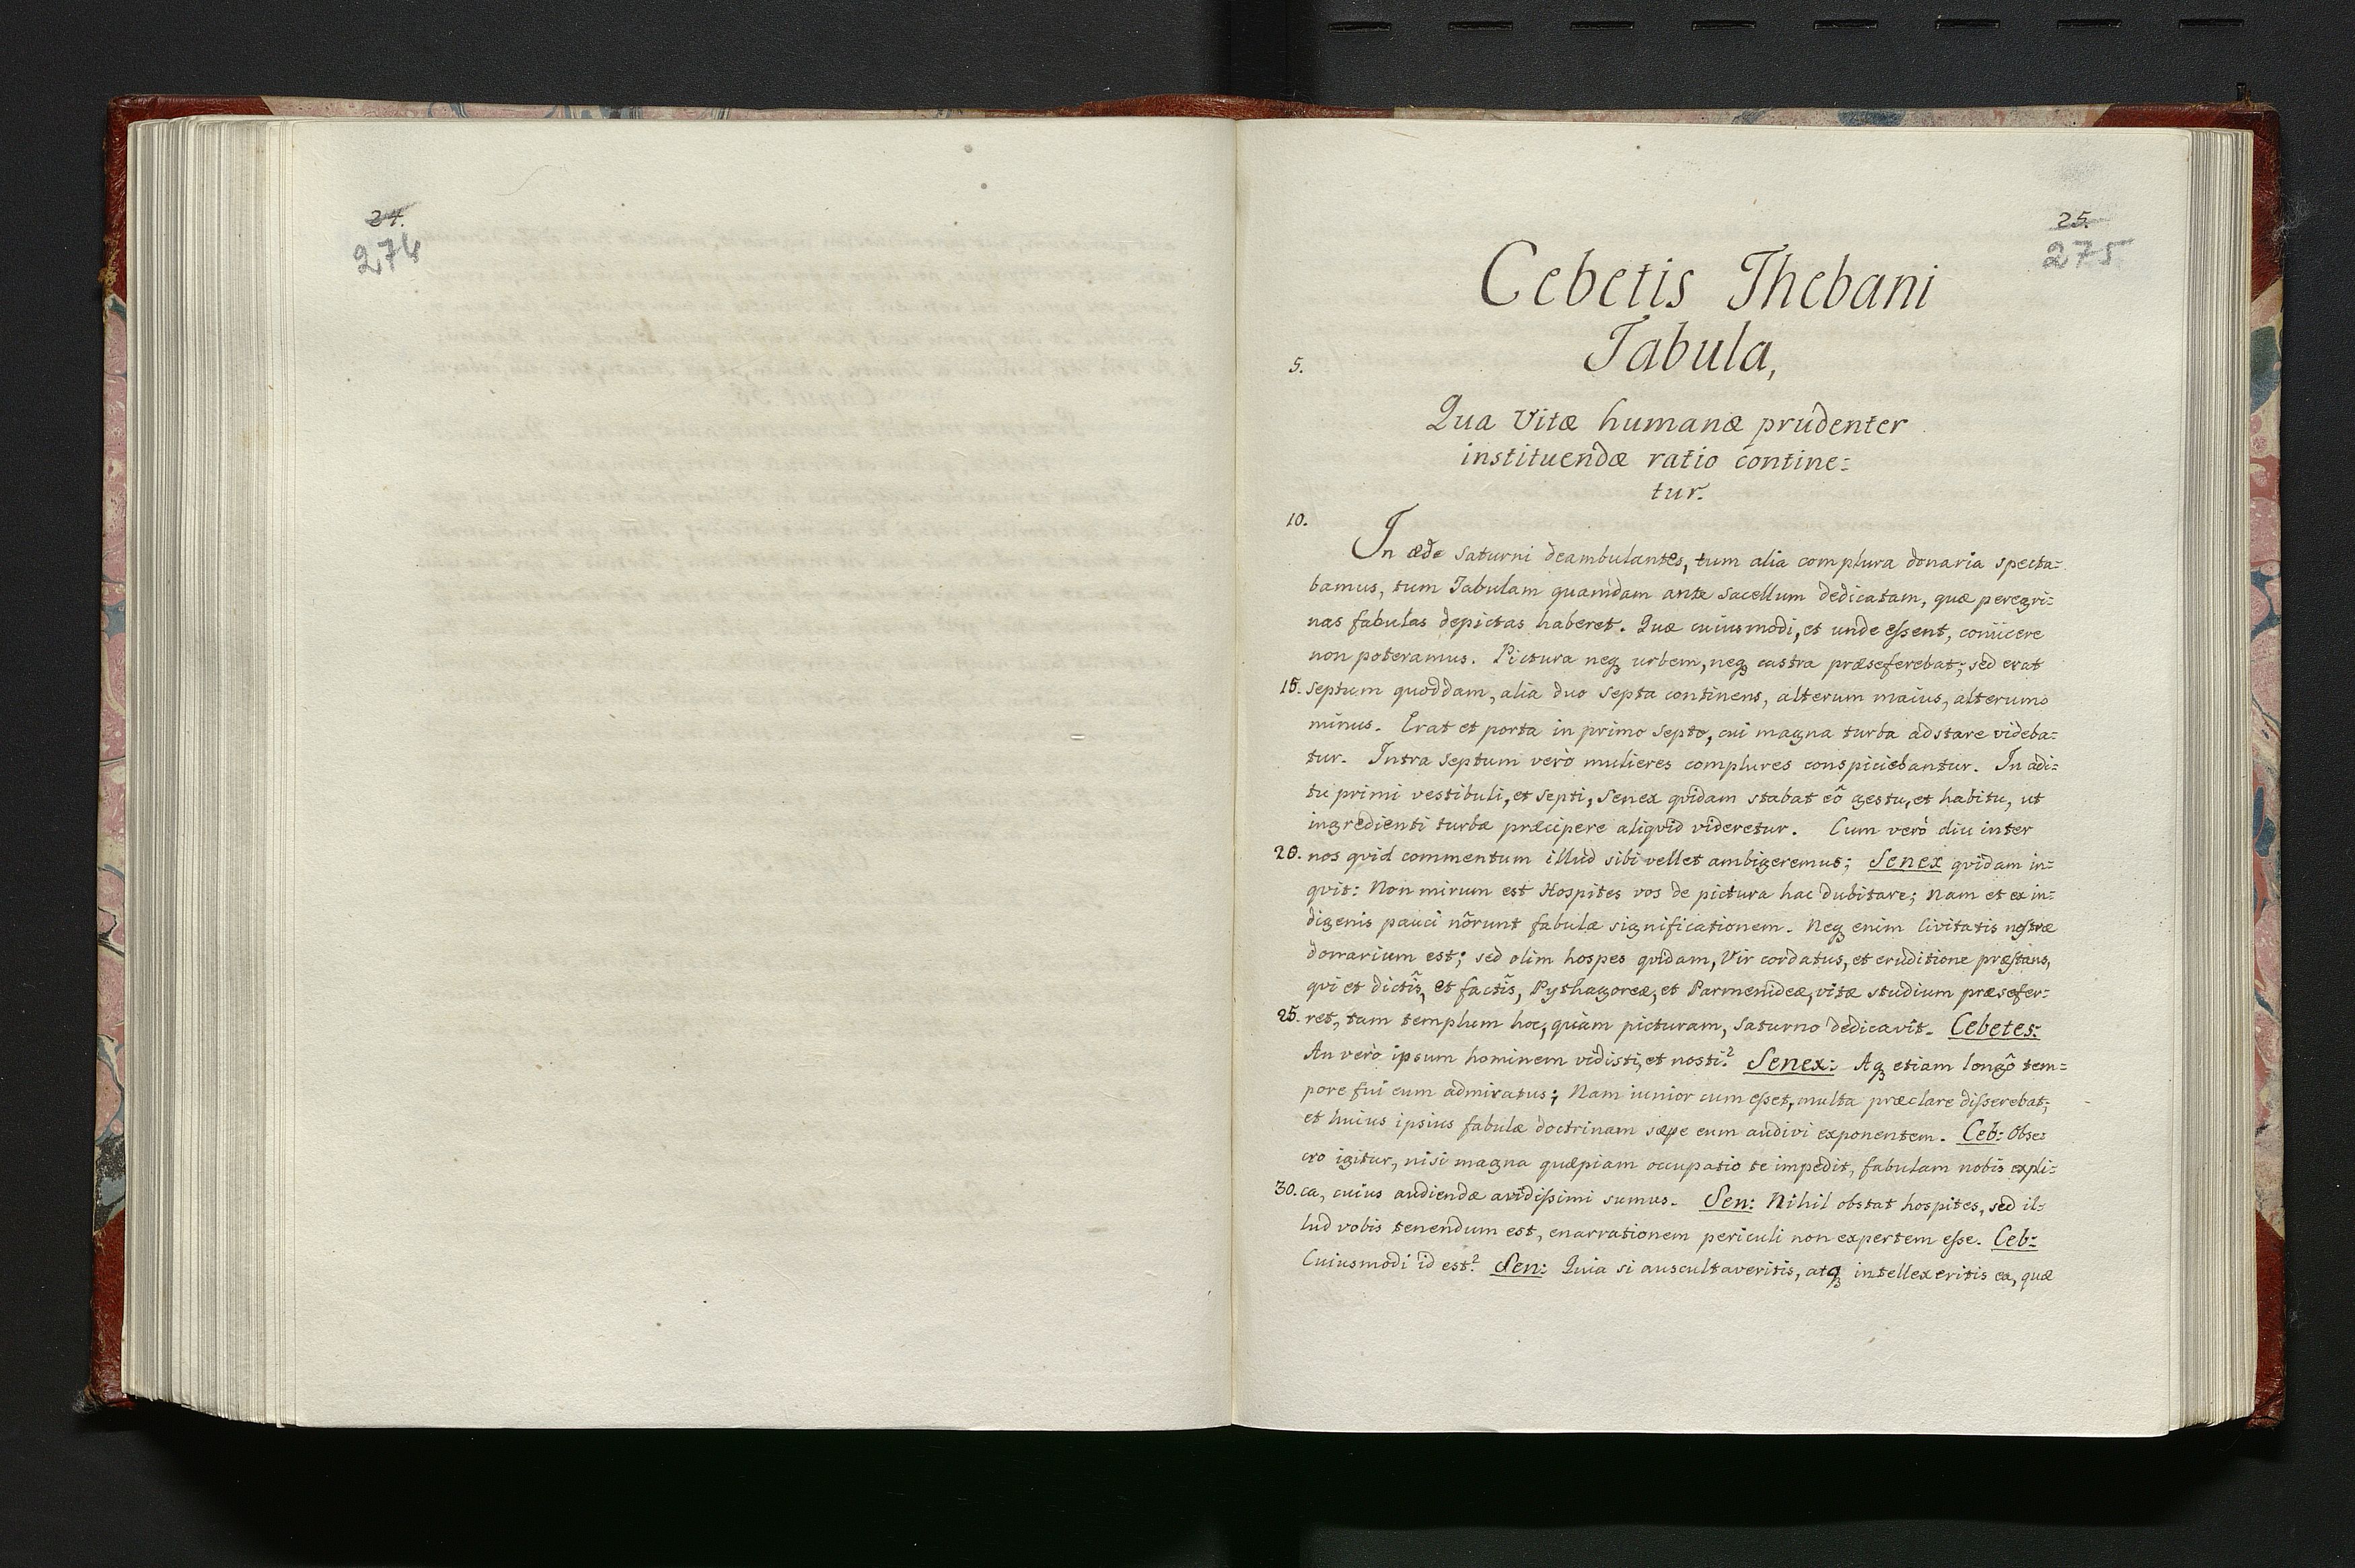 24.
274
25.
275
Cebetis Thebani
Tabula,
5.
Qua Vitæ humanæ prudenter
instituendæ ratio contine=
tur.
10.
In æde Saturni deambulantes, tum alia complura donaria specta=
bamus, tum Tabulam quamdam ante sacellum dedicatam, quæ peregri=
nas fabulas depictas haberet. Quæ cuiusmodi, et unde essent, coniicere
non poteramus. Pictura neq₃ urbem, neq₃ castra præseferebat; sed erat
15. septum quoddam, alia duo septa continens, alterum maius, alterum
minus. Erat et porta in primo septo, cui magna turba adstare videba=
tur. Intra septum verò mulieres complures conspiciebantur. In adi=
tu primi vestibuli, et septi, Senex qvidam stabat eô gestu, et habitu, ut
ingredienti turbæ præcipere aliqvid videretur. Cum verò diu inter
20. nos qvid commentum illud sibi vellet ambigeremus; Senex qvidam in=
qvit: Non mirum est Hospites vos de pictura hac dubitare; nam et ex in=
digenis pauci nôrunt fabulæ significationem. Neq₃ enim Civitatis nostræ
donarium est; sed olim hospes qvidam, Vir cordatus, et eruditione præstans,
qvi et dictîs, et factîs, Pythagoreæ, et Parmenideæ, vitæ studium præsefer=
25. ret, tam templum hoc, quàm picturam, Saturno dedicavit. Cebetes:
An verò ipsum hominem vidisti, et nosti? Senex: Aq₃ etiam longô tem=
pore fui eum admiratus; Nam iunior cum esset, multa præclare disserebat;
et huius ipsius fabulæ doctrinam sæpe eum audivi exponentem. Ceb: Obse=
cro igitur, nisi magna quæpiam occupatio te impedit, fabulam nobis expli=
30. ca, cuius audiendæ avidissimi sumus. Sen: Nihil obstat hospites, sed il=
lud vobis tenendum est, enarrationem periculi non expertem esse. Ceb:
Cuiusmodi id est? Sen: Quia si auscultaveritis, atq₃ intellexeritis ea, quæ